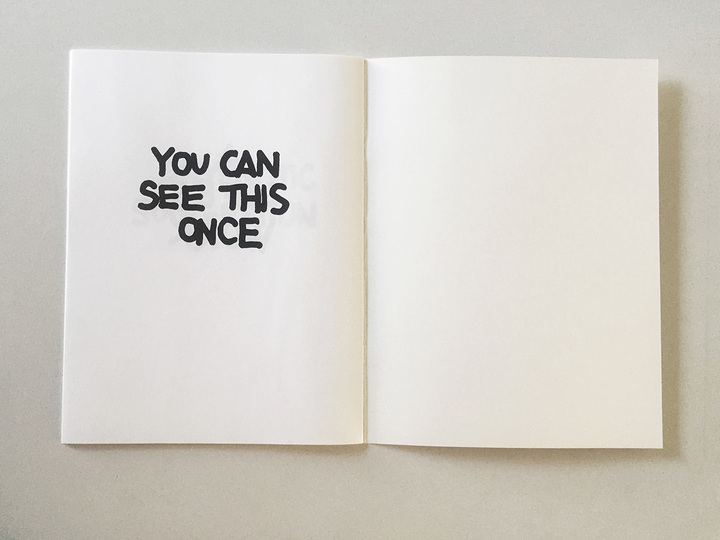 YOU CAN
SEE THIS
ONCE